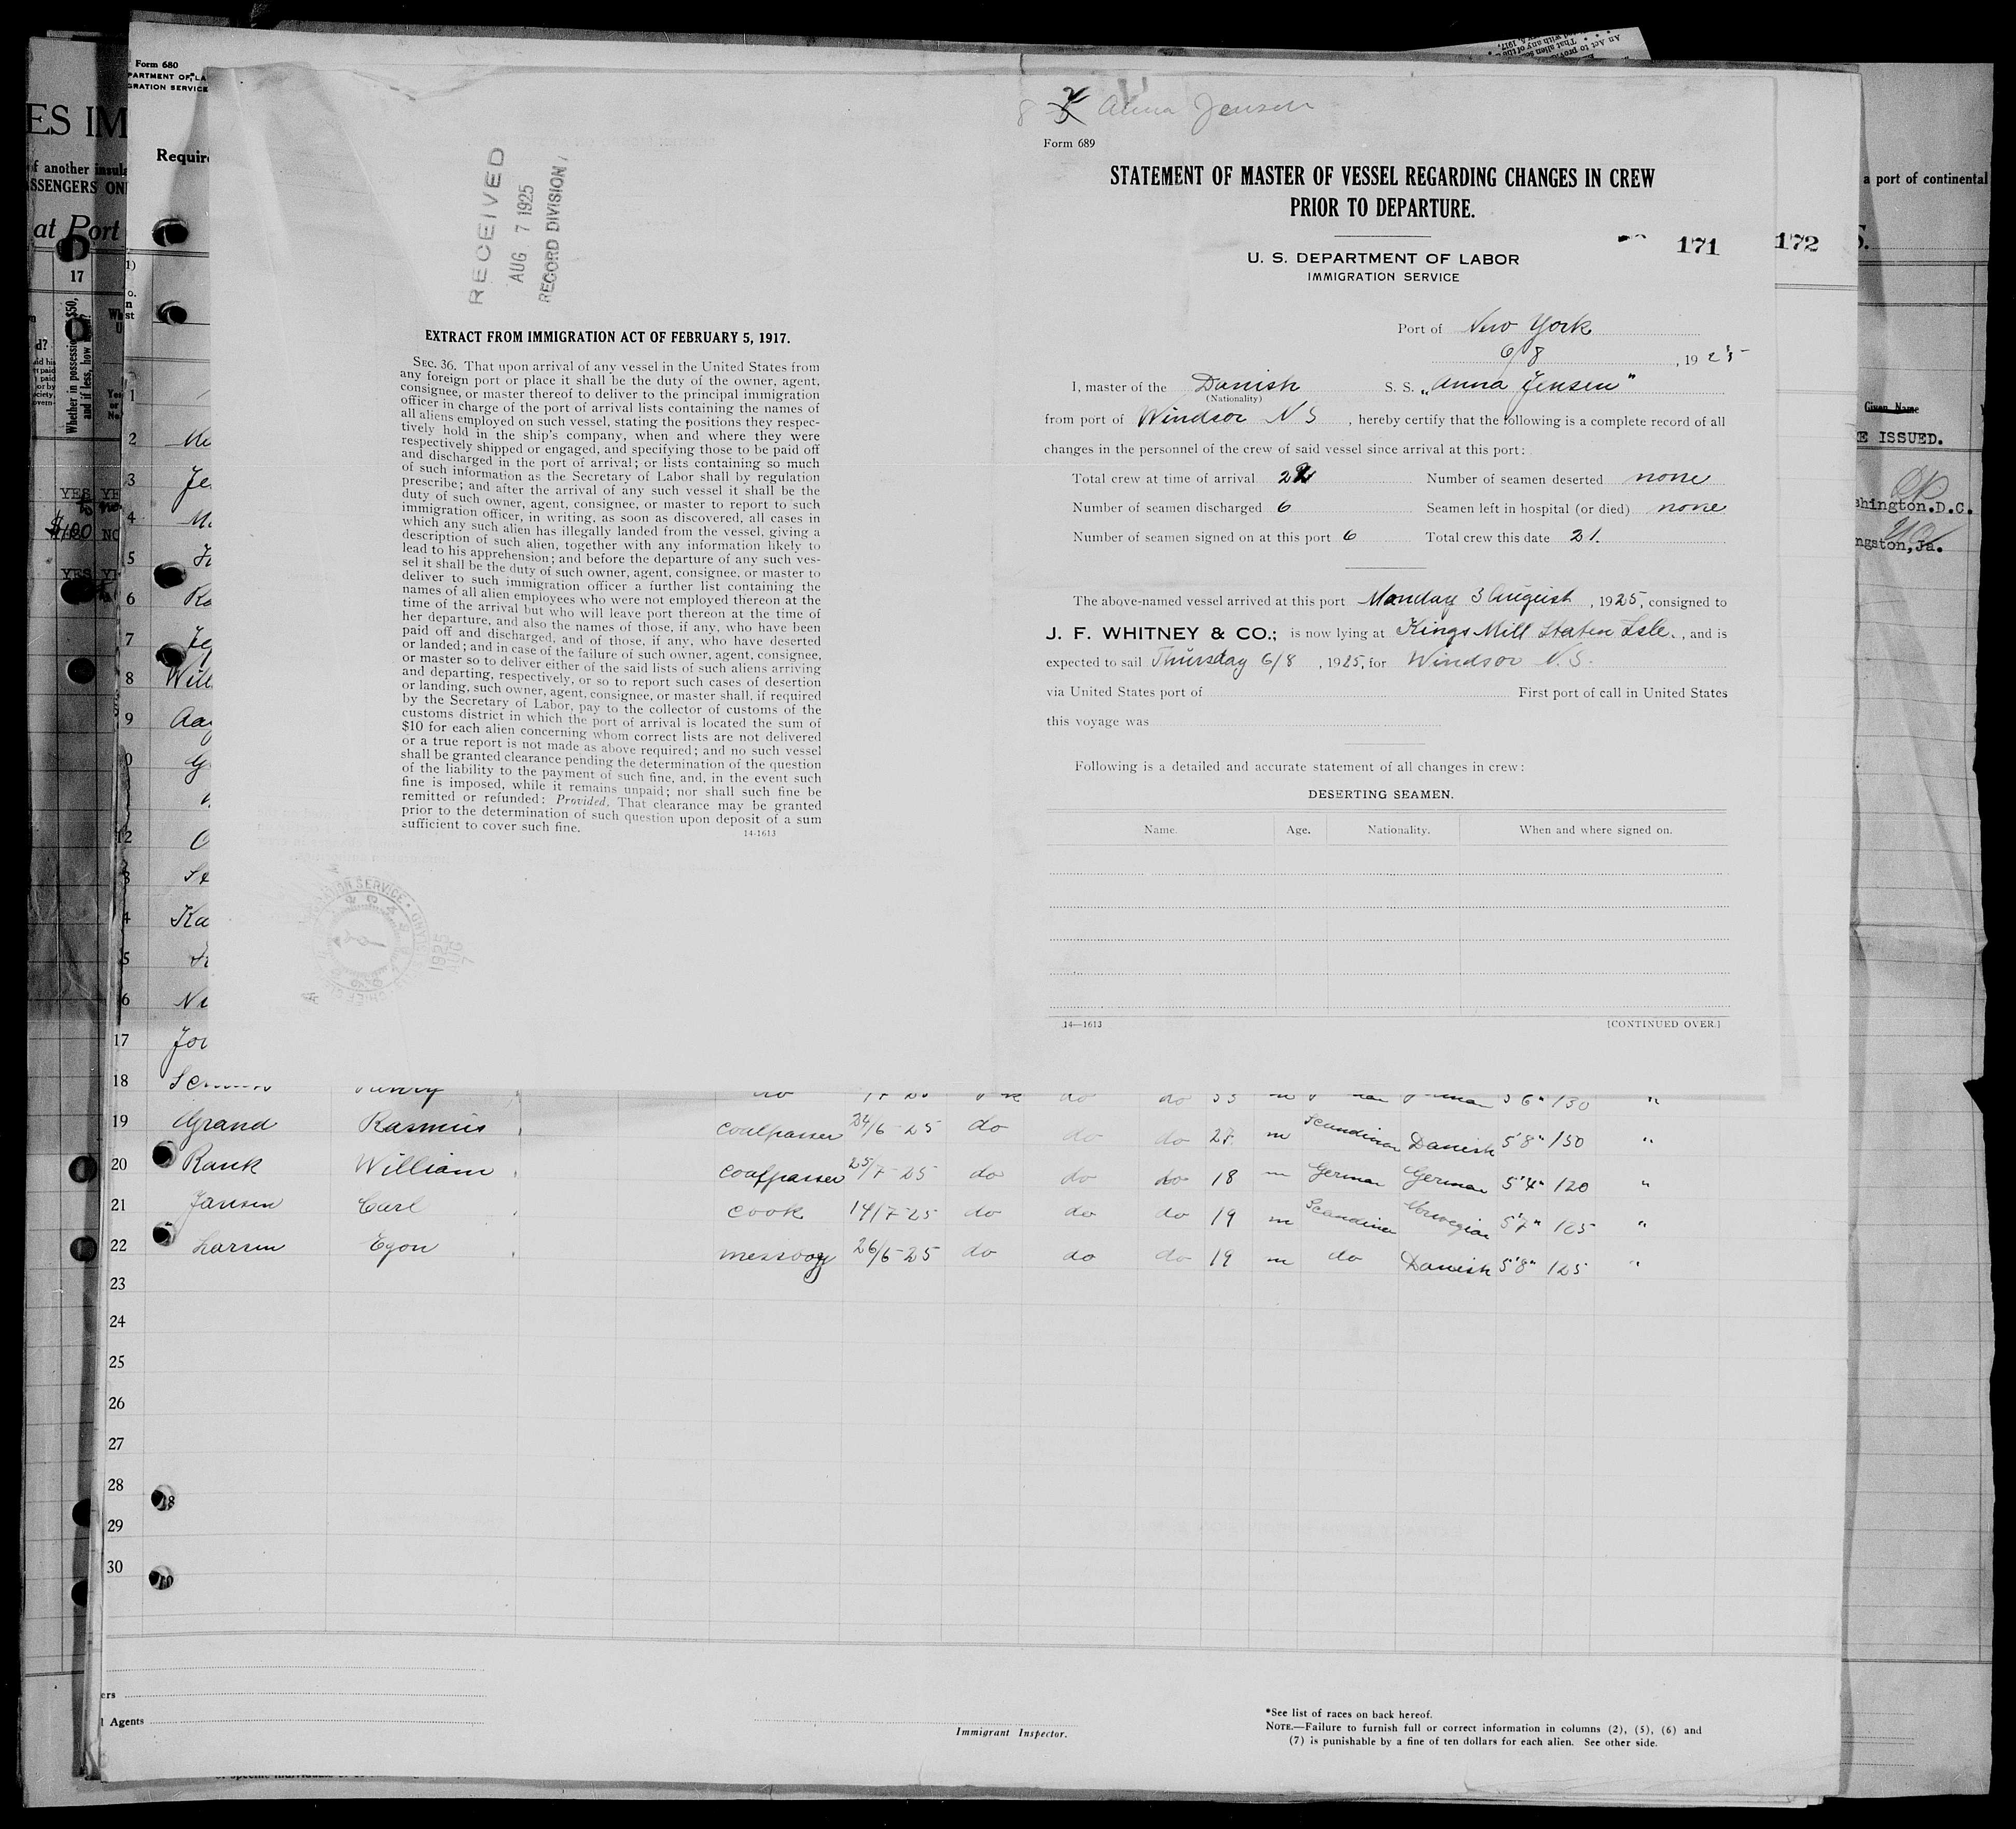 An Act to provide
That alien seamen
with any of the
1917,
Form 680
PARTMENT OF LA
GRATION SERVICE
ES IM
Require
f another insula
SSENGERS ON
at Port
17
Whether in possession of $50,
and if less, how much?
YES YE
$100 NO
YES YE
a port of continental
S.
Given Name
E ISSUED.
shington.D.C.
ngston,Ja.
RECEIVED
AUG 7 1925
RECORD DIVISION
EXTRACT FROM IMMIGRATION ACT OF FEBRUARY 5, 1917.
SEC. 36. That upon arrival of any vessel in the United States from
any foreign port or place it shall be the duty of the owner, agent,
consignee, or master thereof to deliver to the principal immigration
officer in charge of the port of arrival lists containing the names of
all aliens employed on such vessel, stating the positions they respec-
tively hold in the ship's company, when and where they were
respectively shipped or engaged, and specifying those to be paid off
and discharged in the port of arrival; or lists containing so much
of such information as the Secretary of Labor shall by regulation
prescribe; and after the arrival of any such vessel it shall be the
duty of such owner, agent, consignee, or master to report to such
immigration officer, in writing, as soon as discovered, all cases in
which any such alien has illegally landed from the vessel, giving a
description of such alien, together with any information likely to
lead to his apprehension; and before the departure of any such ves-
sel it shall be the duty of such owner, agent, consignee, or master to
deliver to such immigration officer a further list containing the
names of all alien employees who were not employed thereon at the
time of the arrival but who will leave port thereon at the time of
her departure, and also the names of those, if any, who have been
paid off and discharged, and of those, if any, who have deserted
or landed; and in case of the failure of such owner, agent, consignee,
or master so to deliver either of the said lists of such aliens arriving
and departing, respectively, or so to report such cases of desertion
or landing, such owner, agent, consignee, or master shall, if required
by the Secretary of Labor, pay to the collector of customs of the
customs district in which the port of arrival is located the sum of
$10 for each alien concerning whom correct lists are not delivered
or a true report is not made as above required; and no such vessel
shall be granted clearance pending the determination of the question
of the liability to the payment of such fine, and, in the event such
fine is imposed, while it remains unpaid; nor shall such fine be
remitted or refunded: Provided, That clearance may be granted
prior to the determination of such question upon deposit of a sum
sufficient to cover such fine.
14-1613
Anna Jensen
Form 689
STATEMENT OF MASTER OF VESSEL REGARDING CHANGES IN CREW
PRIOR TO DEPARTURE.
171 172
U. S. DEPARTMENT OF LABOR
IMMIGRATION SERVICE
Port of New York
6/8, 1925
I, master of the Danish S. S. „Anna Jensen"
(Nationality)
from port of Windsor N S, hereby certify that the following is a complete record of all
changes in the personnel of the crew of said vessel since arrival at this port:
Total crew at time of arrival 21 Number of seamen deserted none
Number of seamen discharged 6 Seamen left in hospital (or died) none
Number of seamen signed on at this port 6 Total crew this date 21.
The above-named vessel arrived at this port Monday 3 August, 1925, consigned to
J. F. WHITNEY & CO.; is now lying at Kings Mill Staten Isle., and is
expected to sail Thursday 6/8, 1925, for Windsor N.S.
via United States port of First port of call in United States
this voyage was
Following is a detailed and accurate statement of all changes in crew:
DESERTING SEAMEN.
Name. Age. Nationality. When and where signed on.
14—1613 [CONTINUED OVER.]
1
2
3 Je
4
5
6
7
8 Will
9 Aag
12
4 Ka
5
6
17
18
19 Grand Rasmus coalpasser 24/6-25 do do do 27 m Scandinav Danish 5'8" 150 "
20 Rank William coalpasser 25/7-25 do do do 18 m German German 5'4" 120 "
21 Jansen Carl cook 14/7-25 do do do 19 m Scandinav Norwegian 5'7" 125 "
22 Larsen Egon messboy 26/6-25 do do do 19 m do Danish 5'8" 125 "
23
24
25
26
27
28
29
30
ers
l Agents
Immigrant Inspector.
*See list of races on back hereof.
NOTE.—Failure to furnish full or correct information in columns (2), (5), (6) and
(7) is punishable by a fine of ten dollars for each alien. See other side.